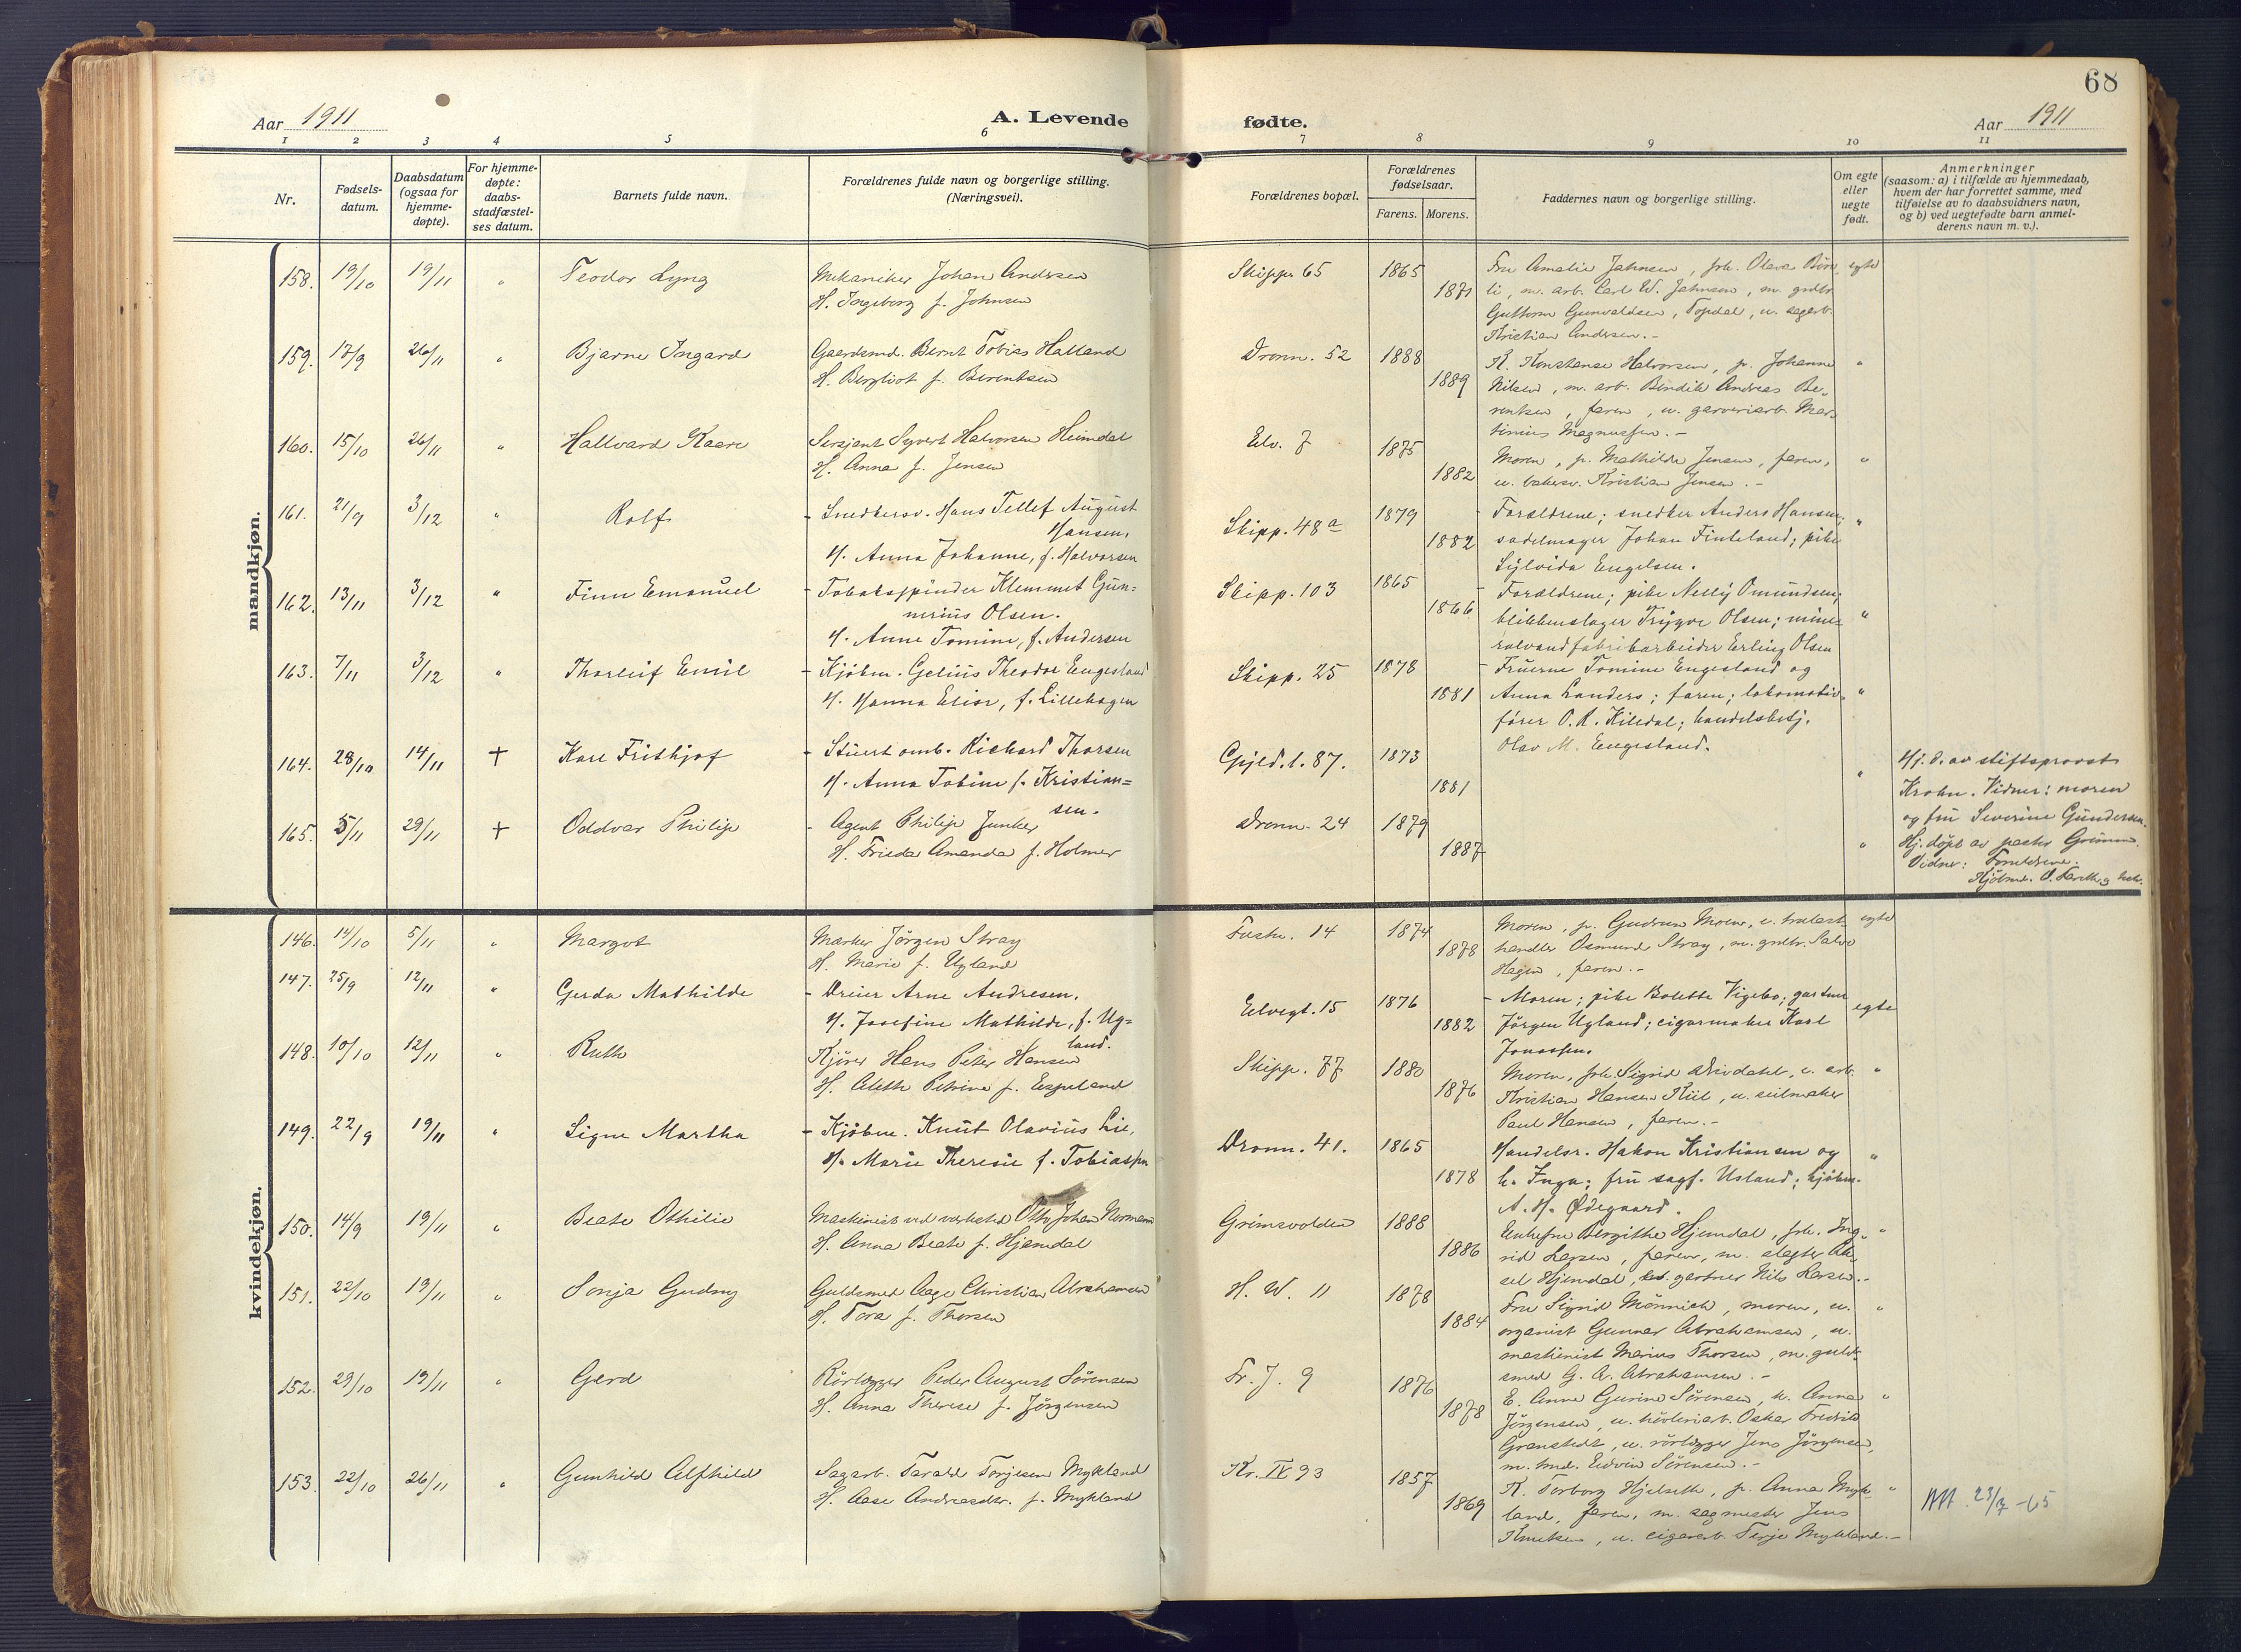 68
Aar 1911
A. Levende
fødte.
Aar 1911
1 2 3 4 5 6 7 8 9 10 11
Nr.
Fødsels-
datum.
Daabsdatum
(ogsaa for
hjemme-
døpte).
For hjemme-
døpte:
daabs-
stadfæstel-
ses datum.
Barnets fulde navn.
Forældrenes fulde navn og borgerlige stilling.
(Næringsvei).
Forældrenes bopæl.
Forældrenes
fødselsaar.
Farens. Morens.
Faddernes navn og borgerlige stilling.
Om egte
eller
uegte
født.
Anmerkninger
(saasom: a) i tilfælde av hjemmedaab,
hvem der har forrettet samme, med
tilføielse av to daabsvidners navn,
og b) ved uegtefødte barn anmel-
derens navn m. v.).
mandkjøn.
158. 19/10 19/11 " Teodor Lyng
Mekaniker Johan Andersen
H. Ingeborg f. Johnsen
Skipper 65 1865 1871
Fru Amalie Jahnsen, frk. Olava
li, m. arb. Carl W. Jahnsen, m. grdbr.
Guttorm Gunvaldsen, Topdal, u. sagarb.
Kristian Andersen.-
egte
159. 17/9 26/11 " Bjarne Ingard
Gaardsmd. Bernt Tobias Halland
H. Bergliot f. Berentsen
Dronn. 52 1888 1889
K. Konstanse Halvorsen, p. Johanne
Nilsen, m. arb. Bendik Andreas Be-
rentsen, faren, u. garveriarb. Mar-
tinius Magnussen.-
"
160. 15/10 26/11 " Hallvard Kaare
Sersjant Syvert Halvorsen Heimdal
H. Anna f. Jensen
Elv. 7 1875 1882
Moren, p. Mathilde Jensen, faren,
u. bakersv. Kristian Jensen.-
"
161. 21/9 3/12 " Rolf
- Snedkersv. Hans Tellef August
Hansen.
H. Anna Johanne, f. Halvorsen
Skipp. 48a 1879 1882
- Forældrene; snedker Anders Hansen;
sadelmager Johan Finteland; pike
Sylvida Engelsen.
"
162. 13/11 3/12 " Finn Emanuel
- Tobakspinder Klemmet Gun=
nerius Olsen.
H. Anne Tomine, f. Andersen
Skipp. 103 1865 1866
- Forældrene; pike Nelly Omundsen;
blikkenslager Trygve Olsen; mine=
ralvandfabrikarbeider Erling Olsen
"
163. 7/11 3/12 " Thorleif Emil
- Kjøbm. Gelius Theodor Engesland
H. Hanna Elise, f. Lillehagen
Skipp. 25 1878 1881
- Fruerne Tomine Engesland og
Anna Landers; faren; lokomotiv-
fører O. K. Kiledal; handelsbetj.
Olav M. Engesland.
"
164. 28/10 14/11 + Kare Frithjof
- Stuert omb. Richard Thorsen
H. Anna Tobine f. Kristian=
sen.
Gyld.l. 87. 1873 1881
"
Hj. d. av stiftsprovst
Krohn. Vidner: moren
og fru Severine Gundersen.
165. 5/11 29/11 + Oddvar Philip
- Agent Philip Junker
H. Frieda Amanda f. Holmer
Dronn. 24 1879 1887
"
Hj. døpt av pastor
Vidner: Forældrene.
kvindekjøn.
146. 14/10 5/11 " Margot
Mærker Jörgen Stray
H. Marie f. Ugland
14 1874 1878
Moren, p. Gudrun Moene, u. trælast-
handler Osmund Stray, m. grdbr. Salve
Hagen, faren.-
egte
147. 25/9 12/11 " Gerda Mathilde
- Dreier Arne Andresen.
H. Josefine Mathilde, f. Ug=
land.
Elvegt. 15 1876 1882
- Moren; pike Bolette Vigebo; gartner
Jörgen Ugland; cigarmaker Karl
Jonassen.
egte
148. 10/10 12/11 " Ruth
Kjører Hans Peter Hansen
H. Alette Petrine f. Espeland
Skipp. 77 1880 1876
Moren, frk. Sigrid Drivdahl, u. arb.
Kristian Hansen Kiil, u. seilmaker
Paul Hansen, faren.-
"
149. 22/9 19/11 " Signe Martha
- Kjøbm. Knut Olavius Lie,
H. Marie Theresie f. Tobiassen
Dronn. 41. 1865 1878
Handelsr. Hakon Kristiansen og
h. Inga; fru sagf. Usland; kjøbm.
A. H. Ødegaard.
"
150. 14/9 19/11 " Beate Othilie
Maskinist ved verksted Otto Johan Normann
H. Anna Beate f. Hjemdal
Grimsvolden 1888 1886
Enkefru Bergithe Hjemdal, frk. Ing-
rid Larsen, faren, m. slagter Ak-
sel Hjemdal, gartner Nils Larsen.-
"
151. 22/10 19/11 " Sonja Gudny
Guldsmed Aage Christian Abrahamsen
H. Tora f. Thorsen
H. W. 11 1878 1884
Fru Sigrid Mönnich, moren, u.
organist Gunnar Abrahamsen, u.
maskinist Marius Thorsen, m. guld-
smed G. A. Abrahamsen.-
"
152. 29/10 19/11 " Gerd
Rörlægger Peder August Sörensen
H. Anna Therese f. Jörgensen
Fr. J. 9 1876 1878
E. Anne Gurine Sörensen, k. Anna
Jörgensen, u. høvleriarb. Oskar Fredrik
Granstedt, u. rörlægger Jens Jörgensen,
m. Edvin Sörensen.-
"
153. 22/10 26/11 " Gunhild Alfhild
Sagarb. Tarald Torjesen Mykland
H. Aase Andreasdtr. f. Mykland
Kr. IV 93 1857 1869
K. Torborg Hjelseth, p. Anna Myk-
land, faren, m. sagmester Jens
Knutsen, u. cigararb. Terje Mykland.-
"
23/7 -65